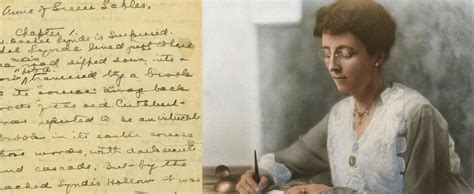 Anne of Green Gables.
Chapter I.
Mrs. Rachel Lynde is Surprised.
Rachel Lynde lived just where
main
road dipped down into a
traversed by a brook
its source away back
woods of the old Cuthbert
was reputed to be an
brook in its earlier course
those words, with dark secrets
and cascade. But by the
reached Lynde's Hollow it was